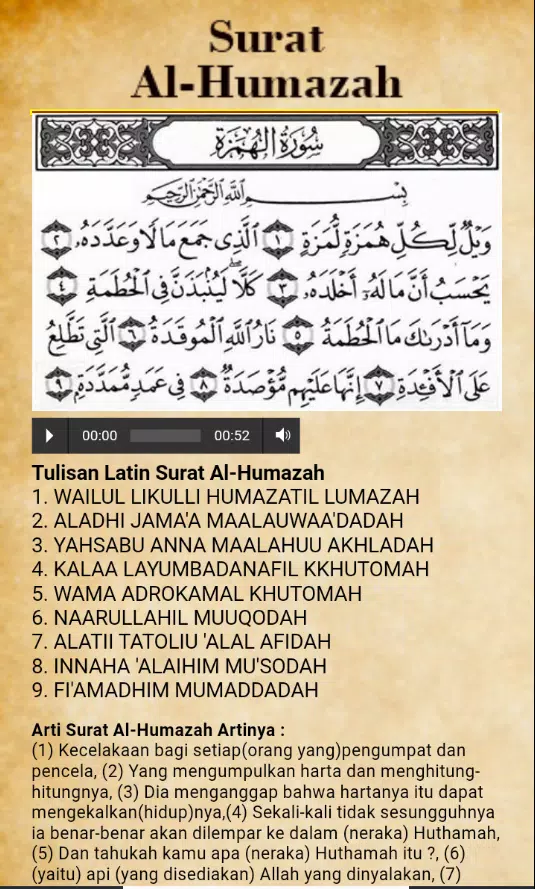 Surat
Al-Humazah
سُورَةُ الهُمَزَةِ
بِسْمِ اللَّهِ الرَّحْمَٰنِ الرَّحِيمِ
وَيْلٌ لِّكُلِّ هُمَزَةٍ لُّمَزَةٍ ۝١ ٱلَّذِى جَمَعَ مَالًا وَعَدَّدَهُۥ ۝٢
يَحْسَبُ أَنَّ مَالَهُۥٓ أَخْلَدَهُۥ ۝٣ كَلَّا ۖ لَيُنۢبَذَنَّ فِى ٱلْحُطَمَةِ ۝٤
وَمَآ أَدْرَىٰكَ مَا ٱلْحُطَمَةُ ۝٥ نَارُ ٱللَّهِ ٱلْمُوقَدَةُ ۝٦ ٱلَّتِى تَطَّلِعُ
عَلَى ٱلْأَفْـِٔدَةِ ۝٧ إِنَّهَا عَلَيْهِم مُّؤْصَدَةٌ ۝٨ فِى عَمَدٍ مُّمَدَّدَةٍۭ ۝٩
00:00 00:52
Tulisan Latin Surat Al-Humazah
1. WAILUL LIKULLI HUMAZATIL LUMAZAH
2. ALADHI JAMA'A MAALAUWAA'DADAH
3. YAHSABU ANNA MAALAHUU AKHLADAH
4. KALAA LAYUMBADANAFIL KKHUTOMAH
5. WAMA ADROKAMAL KHUTOMAH
6. NAARULLAHIL MUUQODAH
7. ALATII TATOLIU 'ALAL AFIDAH
8. INNAHA 'ALAIHIM MU'SODAH
9. FI'AMADHIM MUMADDADAH
Arti Surat Al-Humazah Artinya :
(1) Kecelakaan bagi setiap(orang yang)pengumpat dan
pencela, (2) Yang mengumpulkan harta dan menghitung-
hitungnya, (3) Dia menganggap bahwa hartanya itu dapat
mengekalkan(hidup)nya,(4) Sekali-kali tidak sesungguhnya
ia benar-benar akan dilempar ke dalam (neraka) Huthamah,
(5) Dan tahukah kamu apa (neraka) Huthamah itu ?, (6)
(yaitu) api (yang disediakan) Allah yang dinyalakan, (7)